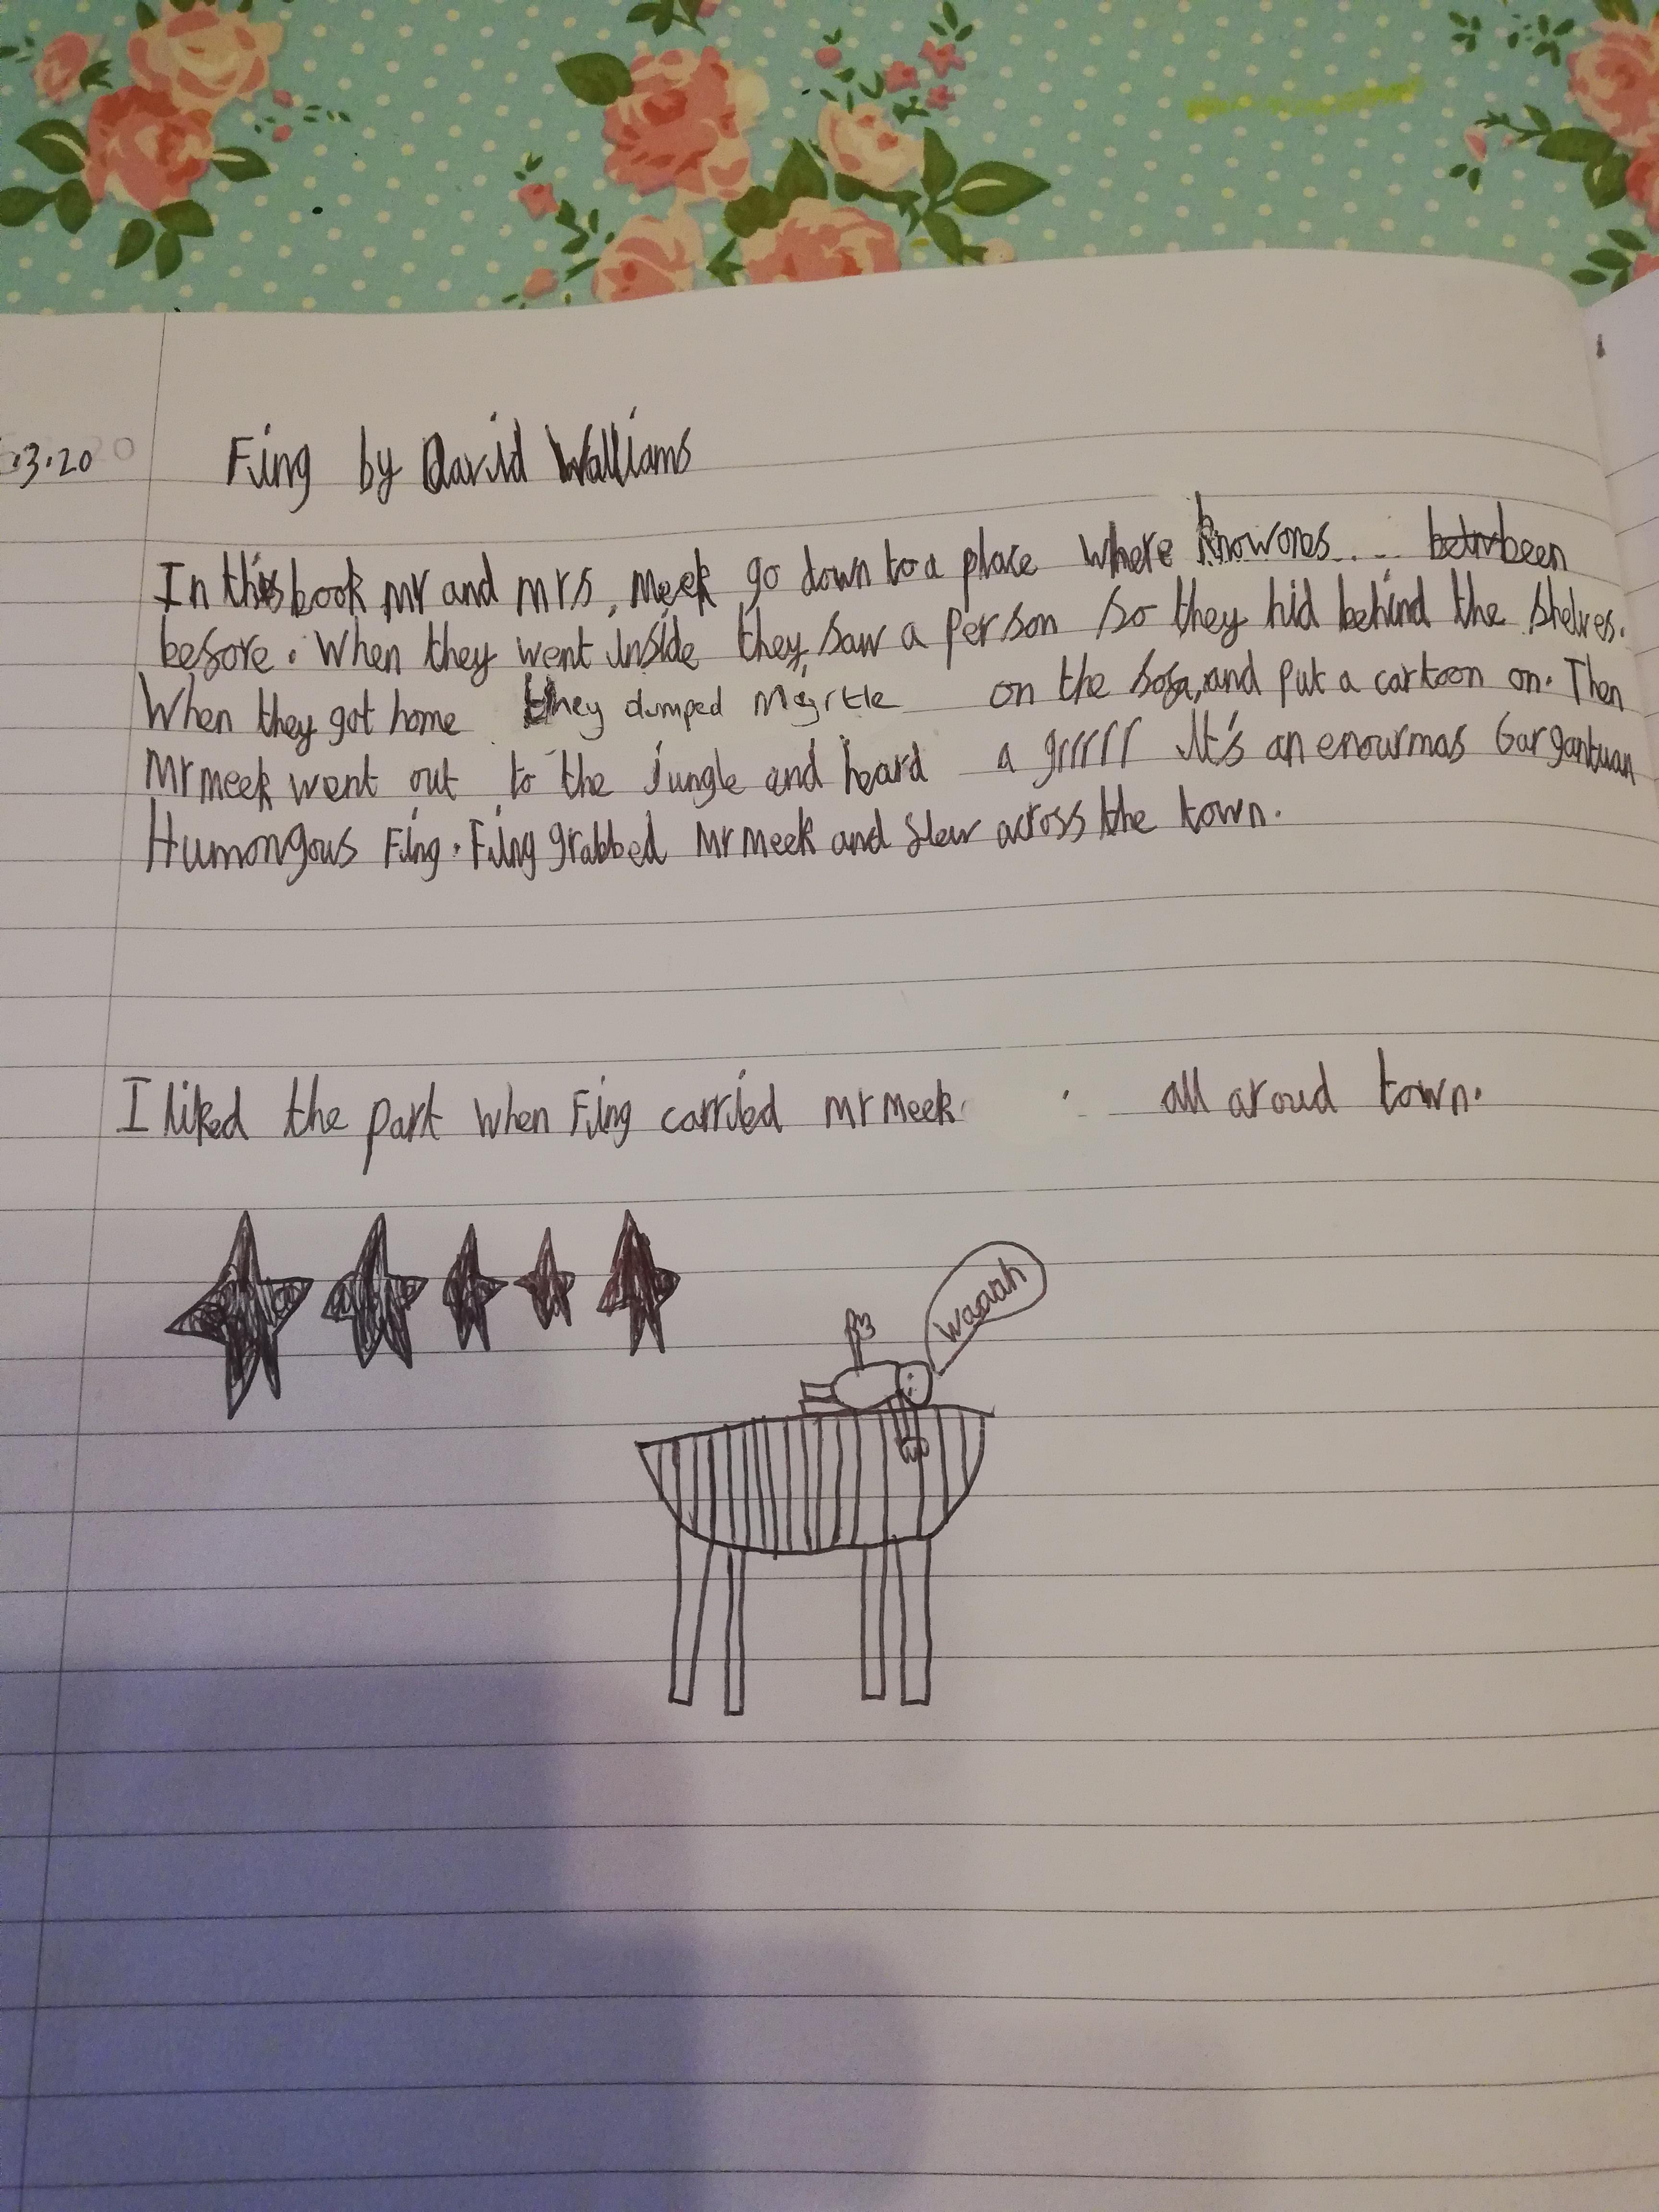 .3.20
Fing by David Walliams
In this book mr and mrs, Meek go down to a place where knowones... been
before. When they went inside they saw a person so they hid behind the shelves.
When they got home they dumped Myrtle on the sofa, and put a cartoon on. Then
Mr meek went out to the jungle and heard a grrrrr It's an enourmas Gargantuan
Humongous Fing. Fing grabbed Mr meek and flew across the town.
I liked the part when Fing carried mr meek all aroud town.
Waaah